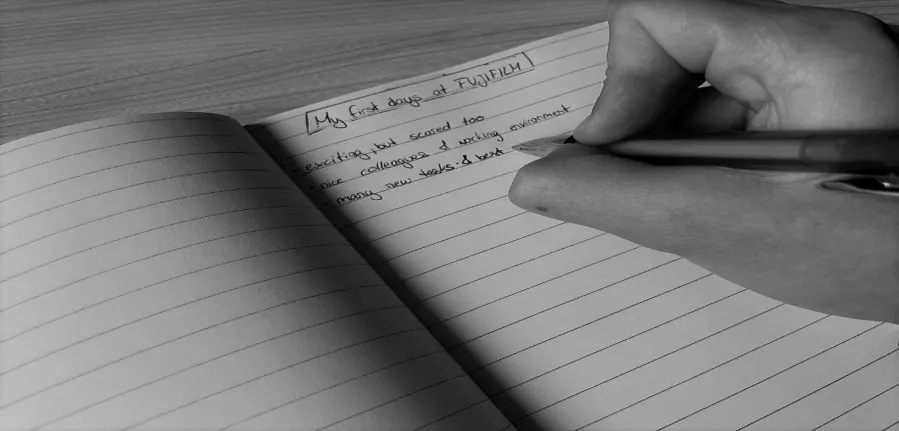 My first days at FUJIFILM
· exciting, but scared too
· nice colleagues & working environment
· many new tasks & best